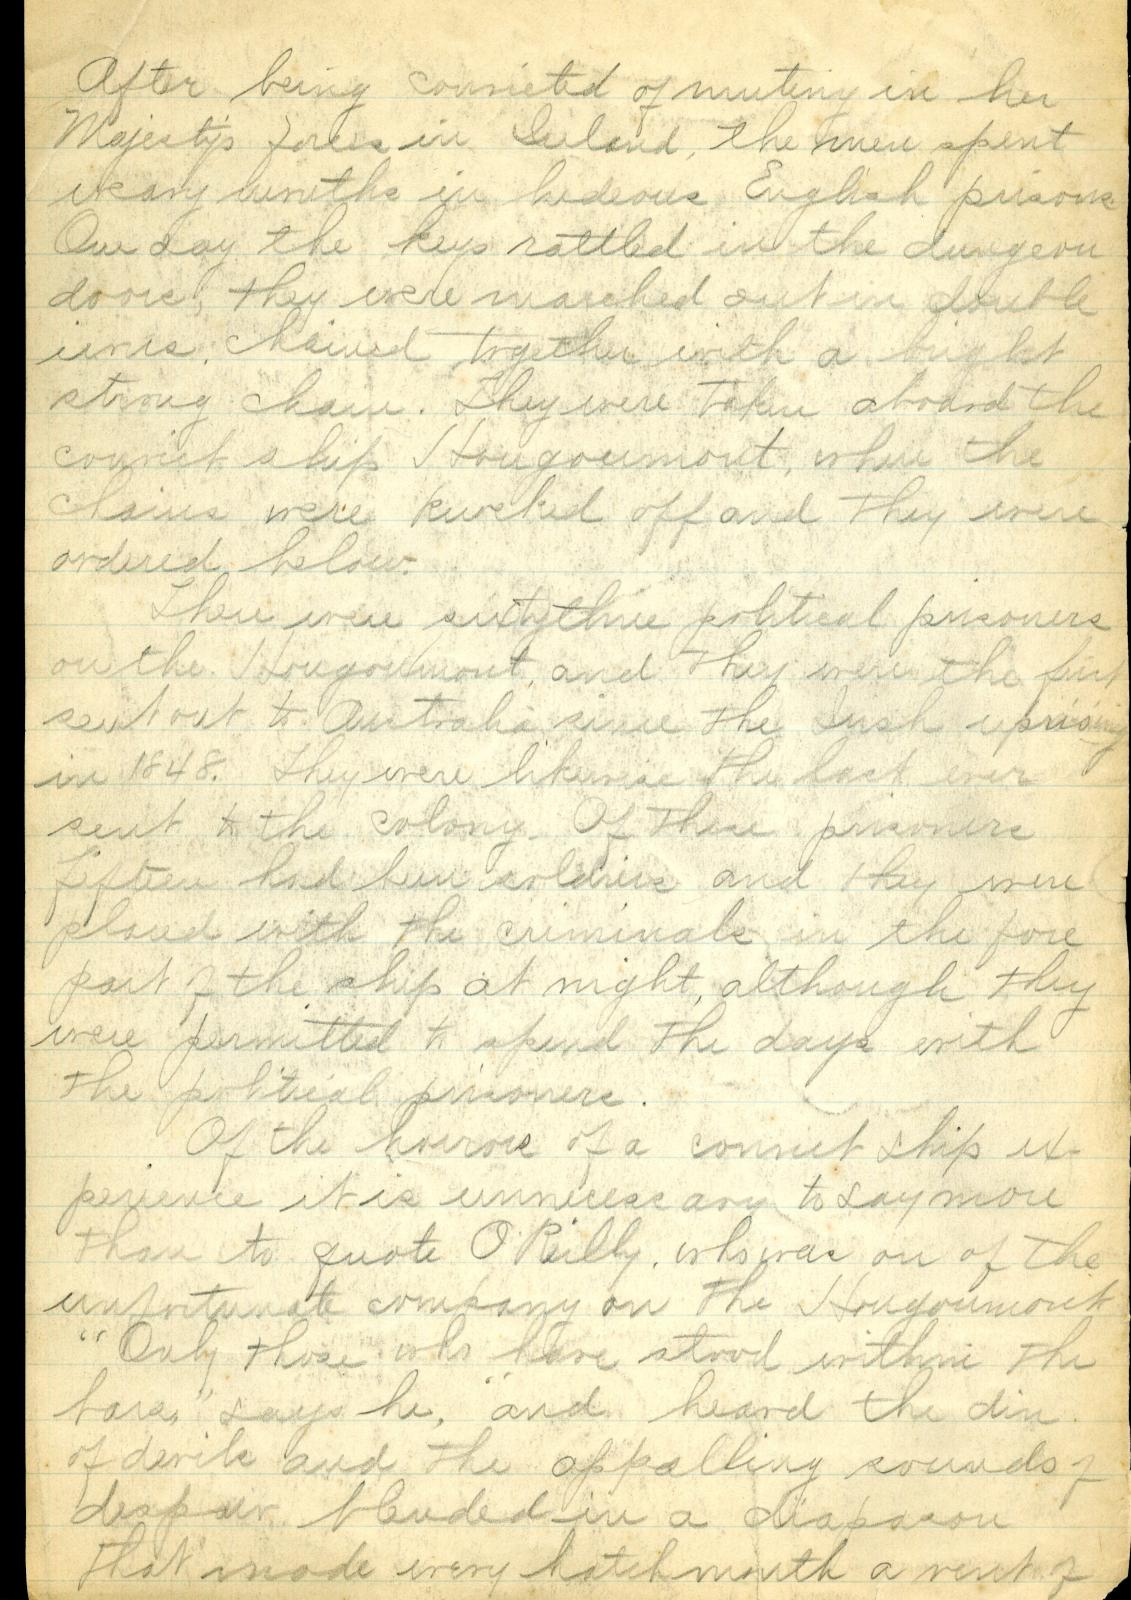 After being convicted of mutiny in her
Majesty's forces in Ireland, the men spent
weary months in hideous English prisons
One day the keys rattled in the dungeon
doors, they were marched out in double
irons, chained together with a bright
strong chain. They were taken aboard the
convict ship Hougoumont, where the
chains were knocked off and they were
ordered below.
There were sixtythree political prisoners
on the Hougoumont, and they were the first
sent out to Australia since the Irish uprising
in 1848. They were likewise the last ever
sent to the colony. Of these prisoners
fifteen had been soldiers and they were
placed with the criminals in the fore
part of the ship at night, although they
were permitted to spend the days with
the political prisoners.
Of the horrors of a convict ship ex-
perience it is unnecessary to say more
than to quote O'Reilly, who was on of the
unfortunate company on the Hougoumont
"Only those who have stood within the
bars," says he, "and heard the din
of devils and the appalling sounds of
despair, blended in a diapason
that made every hatch mouth a vent of